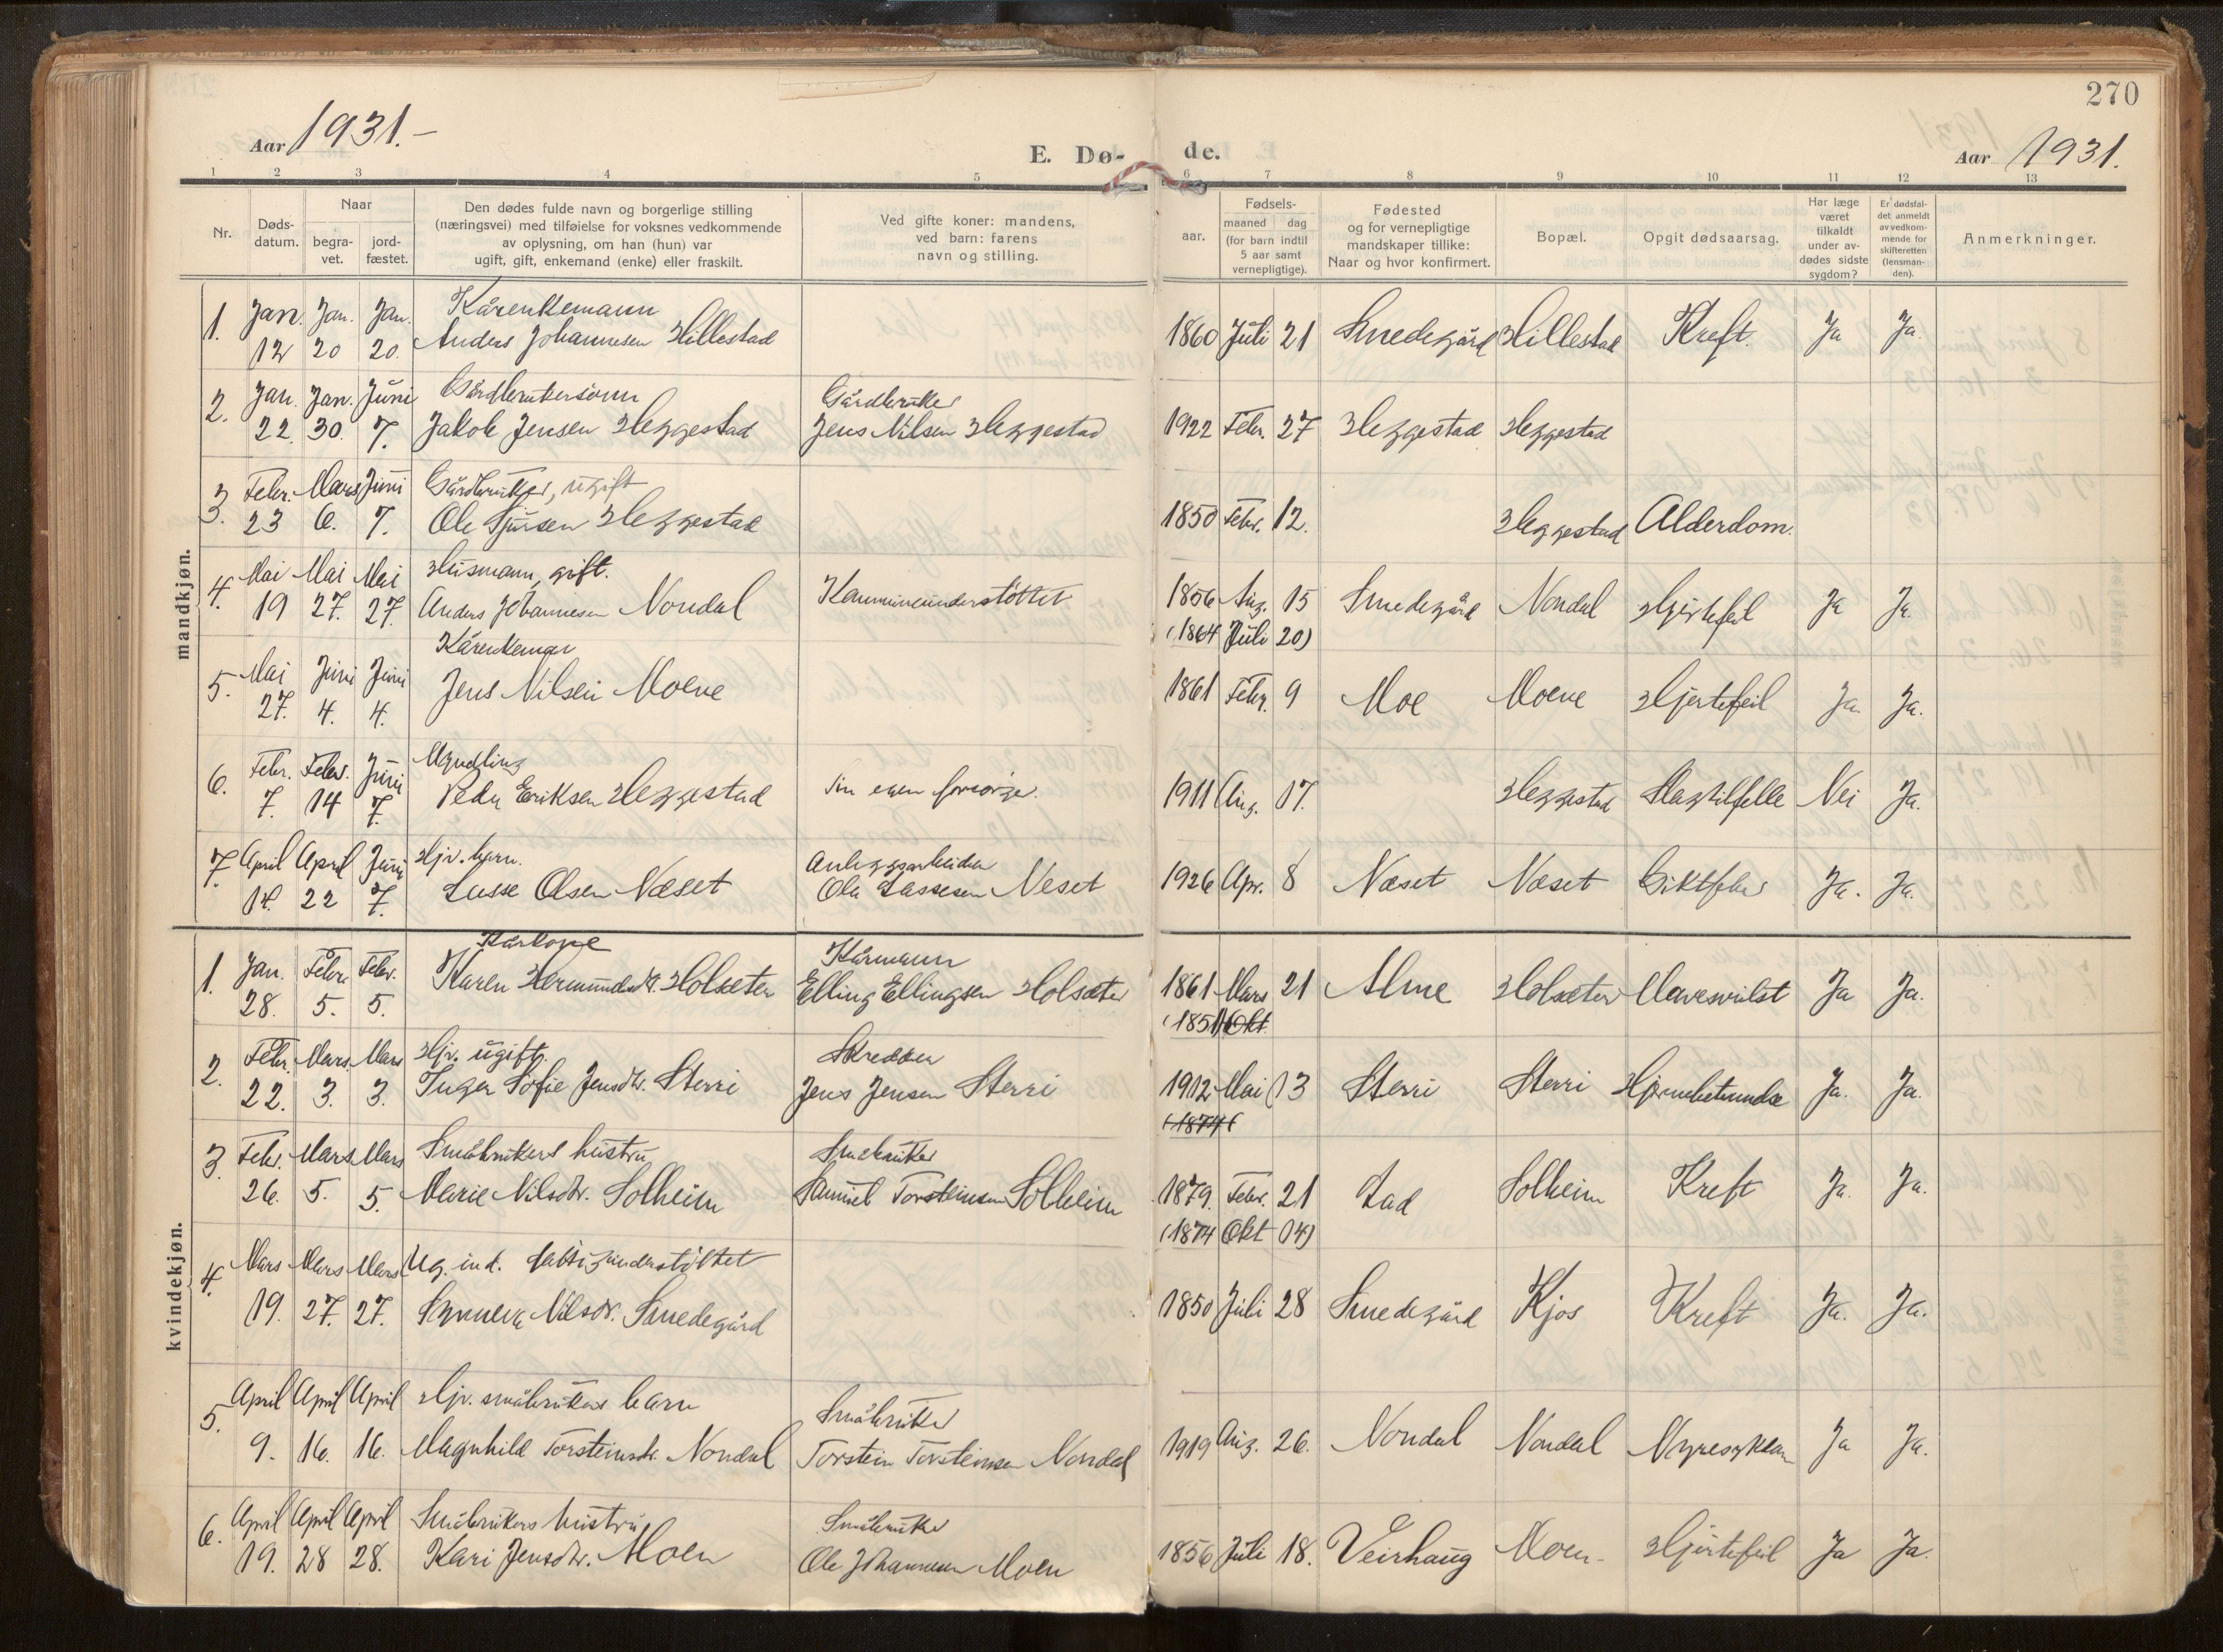 270
Aar 1931.-
E. Dø-
de.
Aar 1931.
1 2 3 4 5 6 7 8 9 10 11 12 13
Nr.
Døds-
datum.
Naar
begra-
vet.
jord-
fæstet.
Den dødes fulde navn og borgerlige stilling
(næringsvei) med tilføielse for voksnes vedkommende
av oplysning, om han (hun) var
ugift, gift, enkemand (enke) eller fraskilt.
Ved gifte koner: mandens,
ved barn: farens
navn og stilling.
aar.
Fødsels-
maaned dag
(for barn indtil
5 aar samt
vernepligtige).
Fødested
og for vernepligtige
mandskaper tillike:
Naar og hvor konfirmert.
Bopæl.
Opgit dødsaarsag.
Har læge
været
tilkaldt
under av-
dødes sidste
sygdom?
Er dødsfal-
det anmeldt
av vedkom-
mende for
skifteretten
(lensman-
den).
Anmerkninger.
mandkjøn.
Kårenkemann
1. Jan. Jan. Jan. Anders Johannesen Hillestad 1860 Juli 21 Smedegård Hillestad Kreft. Ja Ja.
12 20 20.
2. Jan. Jan. Juni Gårdbrukersönn Gårdbruker
22. 30. 7. Jakob Jensen Heggestad Jens Nilsen Heggestad 1922 Febr. 27 Heggestad Heggestad
3. Febr. Mars Juni Gårdbruker, ugift
23 6. 7. Ole Sjursen Heggestad 1850 Febr. 12. Heggestad Alderdom.
4. Mai Mai Mai Husmann, gift.
19 27. 27. Anders Johannesen Nondal Kommuneunderstöttet 1856 Aug. 15 Smedegård Nondal Hjertefeil Ja Ja.
(1864 Juli 20)
Kårenkeman
5. Mai Juni Juni Jens Nilsen Moene 1861 Febr. 9 Moe Moene Hjertefeil Ja. Ja.
27. 4. 4.
6. Febr. Febr. Juni Myndling
7. 14 7. Peder Eriksen Heggestad Sin egen forsörger. 1911 Aug. 17. Heggestad Slagtilfelle Nei Ja.
7. April April Juni Hjv. barn. Anleggsarbeider
14. 22 7. Lasse Olsen Næset Ole Lassesen Neset 1926 Apr. 8 Næset Næset Giktfeber Ja. Ja.
kvindekjøn.
Kårkone Kårmann
1. Jan. Febr. Febr. Karen Hermundsdtr. Holsæter Elling Ellingsen Holsæter 1861 Mars 21 Alme Holsæter Mavesvulst Ja Ja.
28. 5. 5. (1851 Okt.
2. Febr. Mars Mars Hjv. ugift. Skredder
22. 3. 3. Inger Sofie Jensdtr. Sterri Jens Jensen Sterri 1912 Mai 13 Sterri Sterri Hjernebetendelse Ja. Ja.
(1874(
3. Febr. Mars Mars Småbrukers hustru Småbruker
26. 5. 5. Marie Nilsdtr. Solheim Samuel Torsteinsen Solheim 1879. Febr. 21 Lad Solheim Kreft Ja. Ja.
(1874 Okt 14)
4. Mars Mars Mars Ug. ind. fattigunderstöttet
19. 27. 27. Synneva Nilsdtr. Smedegård 1850 Juli 28 Smedegård Kjos Kreft Ja. Ja.
5. April April April Hjv. småbrukers barn Småbruker
9. 16. 16. Magnhild Torsteinsdtr. Nondal Torstein Torsteinsen Nondal 1919 Aug. 26. Nondal Nondal Nyresykdom Ja Ja.
6. April April April Småbrukers hustru Småbruker
19. 28 28. Kari Jensdtr. Moen Ole Johannesen Moen 1856 Juli 18. Veirhaug Moen Hjertefeil Ja Ja.